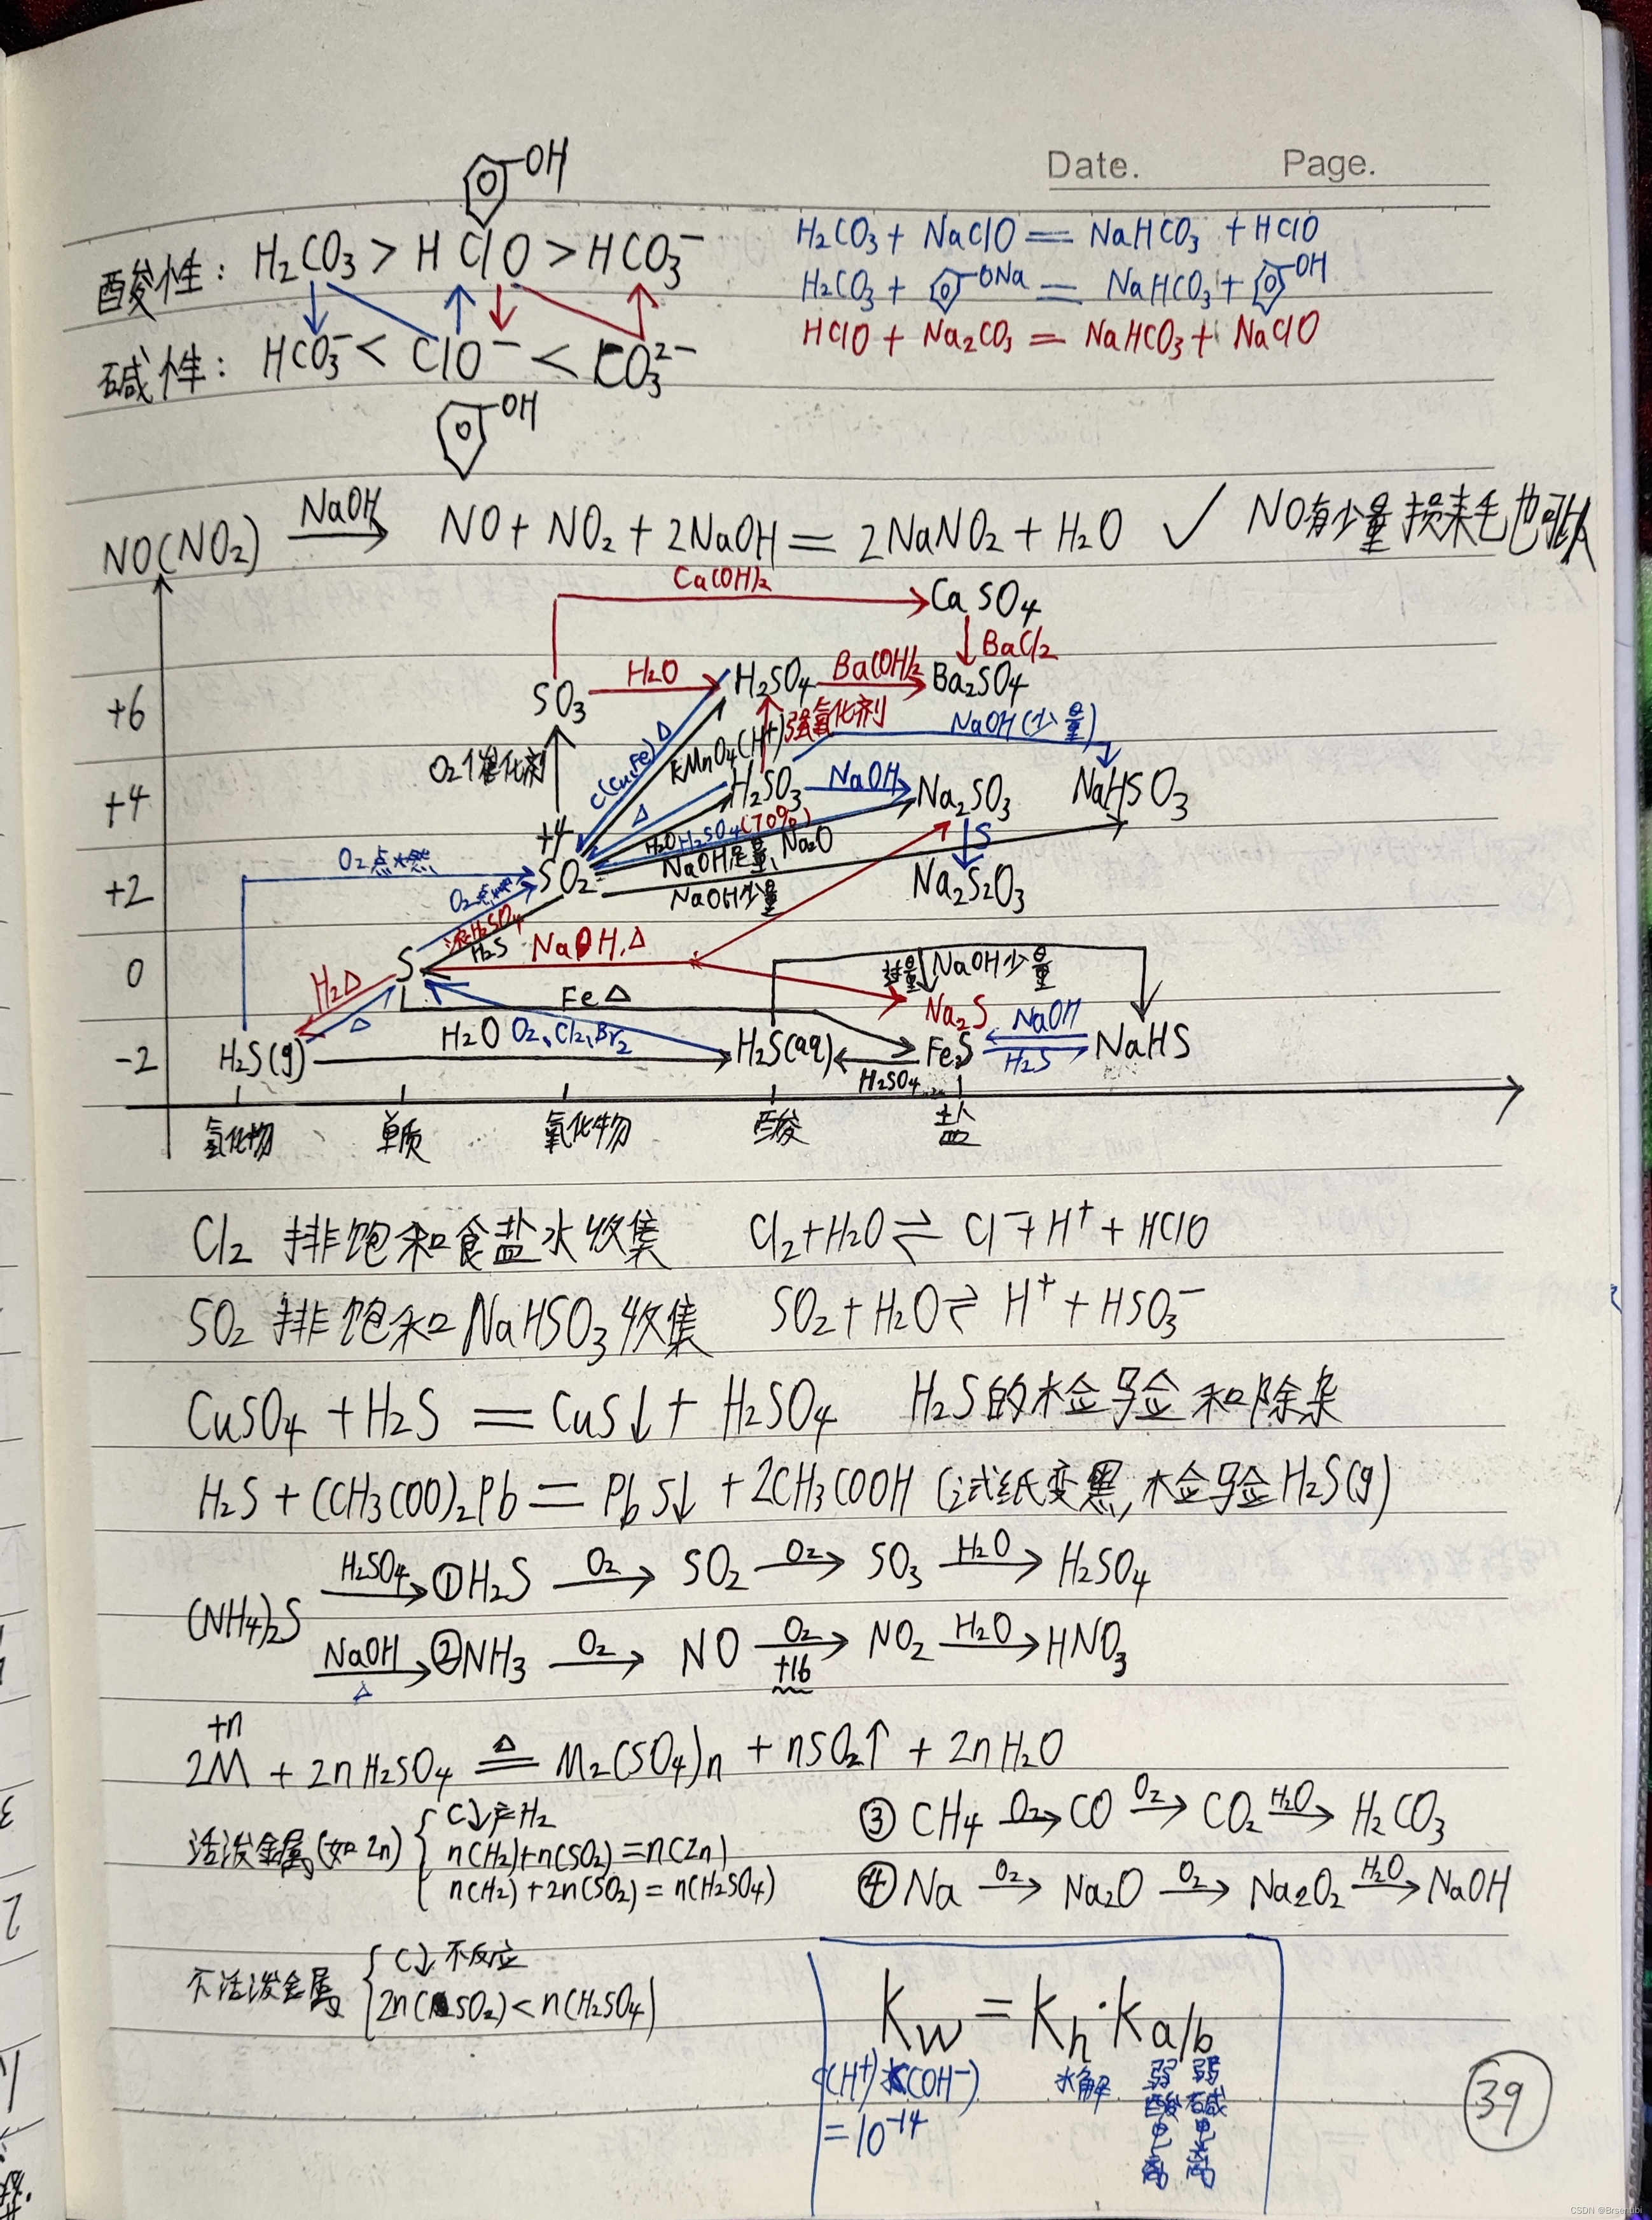 Date. Page.
OH
酸性: H₂CO₃ > HClO > HCO₃⁻
碱性: HCO₃⁻ < ClO⁻ < CO₃²⁻
OH
H₂CO₃ + NaClO = NaHCO₃ + HClO
H₂CO₃ + ONa = NaHCO₃ + OH
HClO + Na₂CO₃ = NaHCO₃ + NaClO
NO(NO₂) NaOH→ NO + NO₂ + 2NaOH = 2NaNO₂ + H₂O ✓ NO有少量损耗也可以
Ca(OH)₂ CaSO₄
BaCl₂
+6 SO₃ H₂O H₂SO₄ Ba(OH)₂ Ba₂SO₄
强氧化剂 NaOH(少量)
O₂催化剂 C(Cu,Fe)△ KMnO₄(H⁺)
+4 △ H₂SO₃ NaOH Na₂SO₃ NaHSO₃
+4 H₂O H₂SO₄(70%) S
O₂点燃 NaOH足量、Na₂O
+2 SO₂ NaOH少量 Na₂S₂O₃
O₂点燃
浓H₂SO₄
H₂S
0 S NaOH,△ 过量 NaOH少量
H₂△ △ Fe△ Na₂S NaOH
H₂O O₂、Cl₂、Br₂
-2 H₂S(g) H₂S(aq) FeS H₂S NaHS
H₂SO₄
氢化物 单质 氧化物 酸 盐
Cl₂ 排饱和食盐水收集 Cl₂+H₂O⇌Cl⁻+H⁺+HClO
SO₂ 排饱和NaHSO₃收集 SO₂+H₂O⇌H⁺+HSO₃⁻
CuSO₄+H₂S=CuS↓+H₂SO₄ H₂S的检验和除杂
H₂S+(CH₃COO)₂Pb=PbS↓+2CH₃COOH(试纸变黑,检验H₂S(g))
(NH₄)₂S H₂SO₄→ ①H₂S O₂→ SO₂ O₂→ SO₃ H₂O→ H₂SO₄
NaOH△→ ②NH₃ O₂→ NO O₂ +16→ NO₂ H₂O→ HNO₃
+n
2M + 2nH₂SO₄ △= M₂(SO₄)n + nSO₂↑ + 2nH₂O
活泼金属(如Zn) { C↓产H₂
n(H₂)+n(SO₂)=n(Zn)
n(H₂)+2n(SO₂)=n(H₂SO₄)
③ CH₄ O₂→ CO O₂→ CO₂ H₂O→ H₂CO₃
④ Na O₂→ Na₂O O₂→ Na₂O₂ H₂O→ NaOH
不活泼金属 { C↓不反应
2n(SO₂)<n(H₂SO₄)
Kw=Kh·Ka/b
c(H⁺)×c(OH⁻) 水解 弱酸电离 弱碱电离
=10⁻¹⁴
39
CSDN @Brsentibi